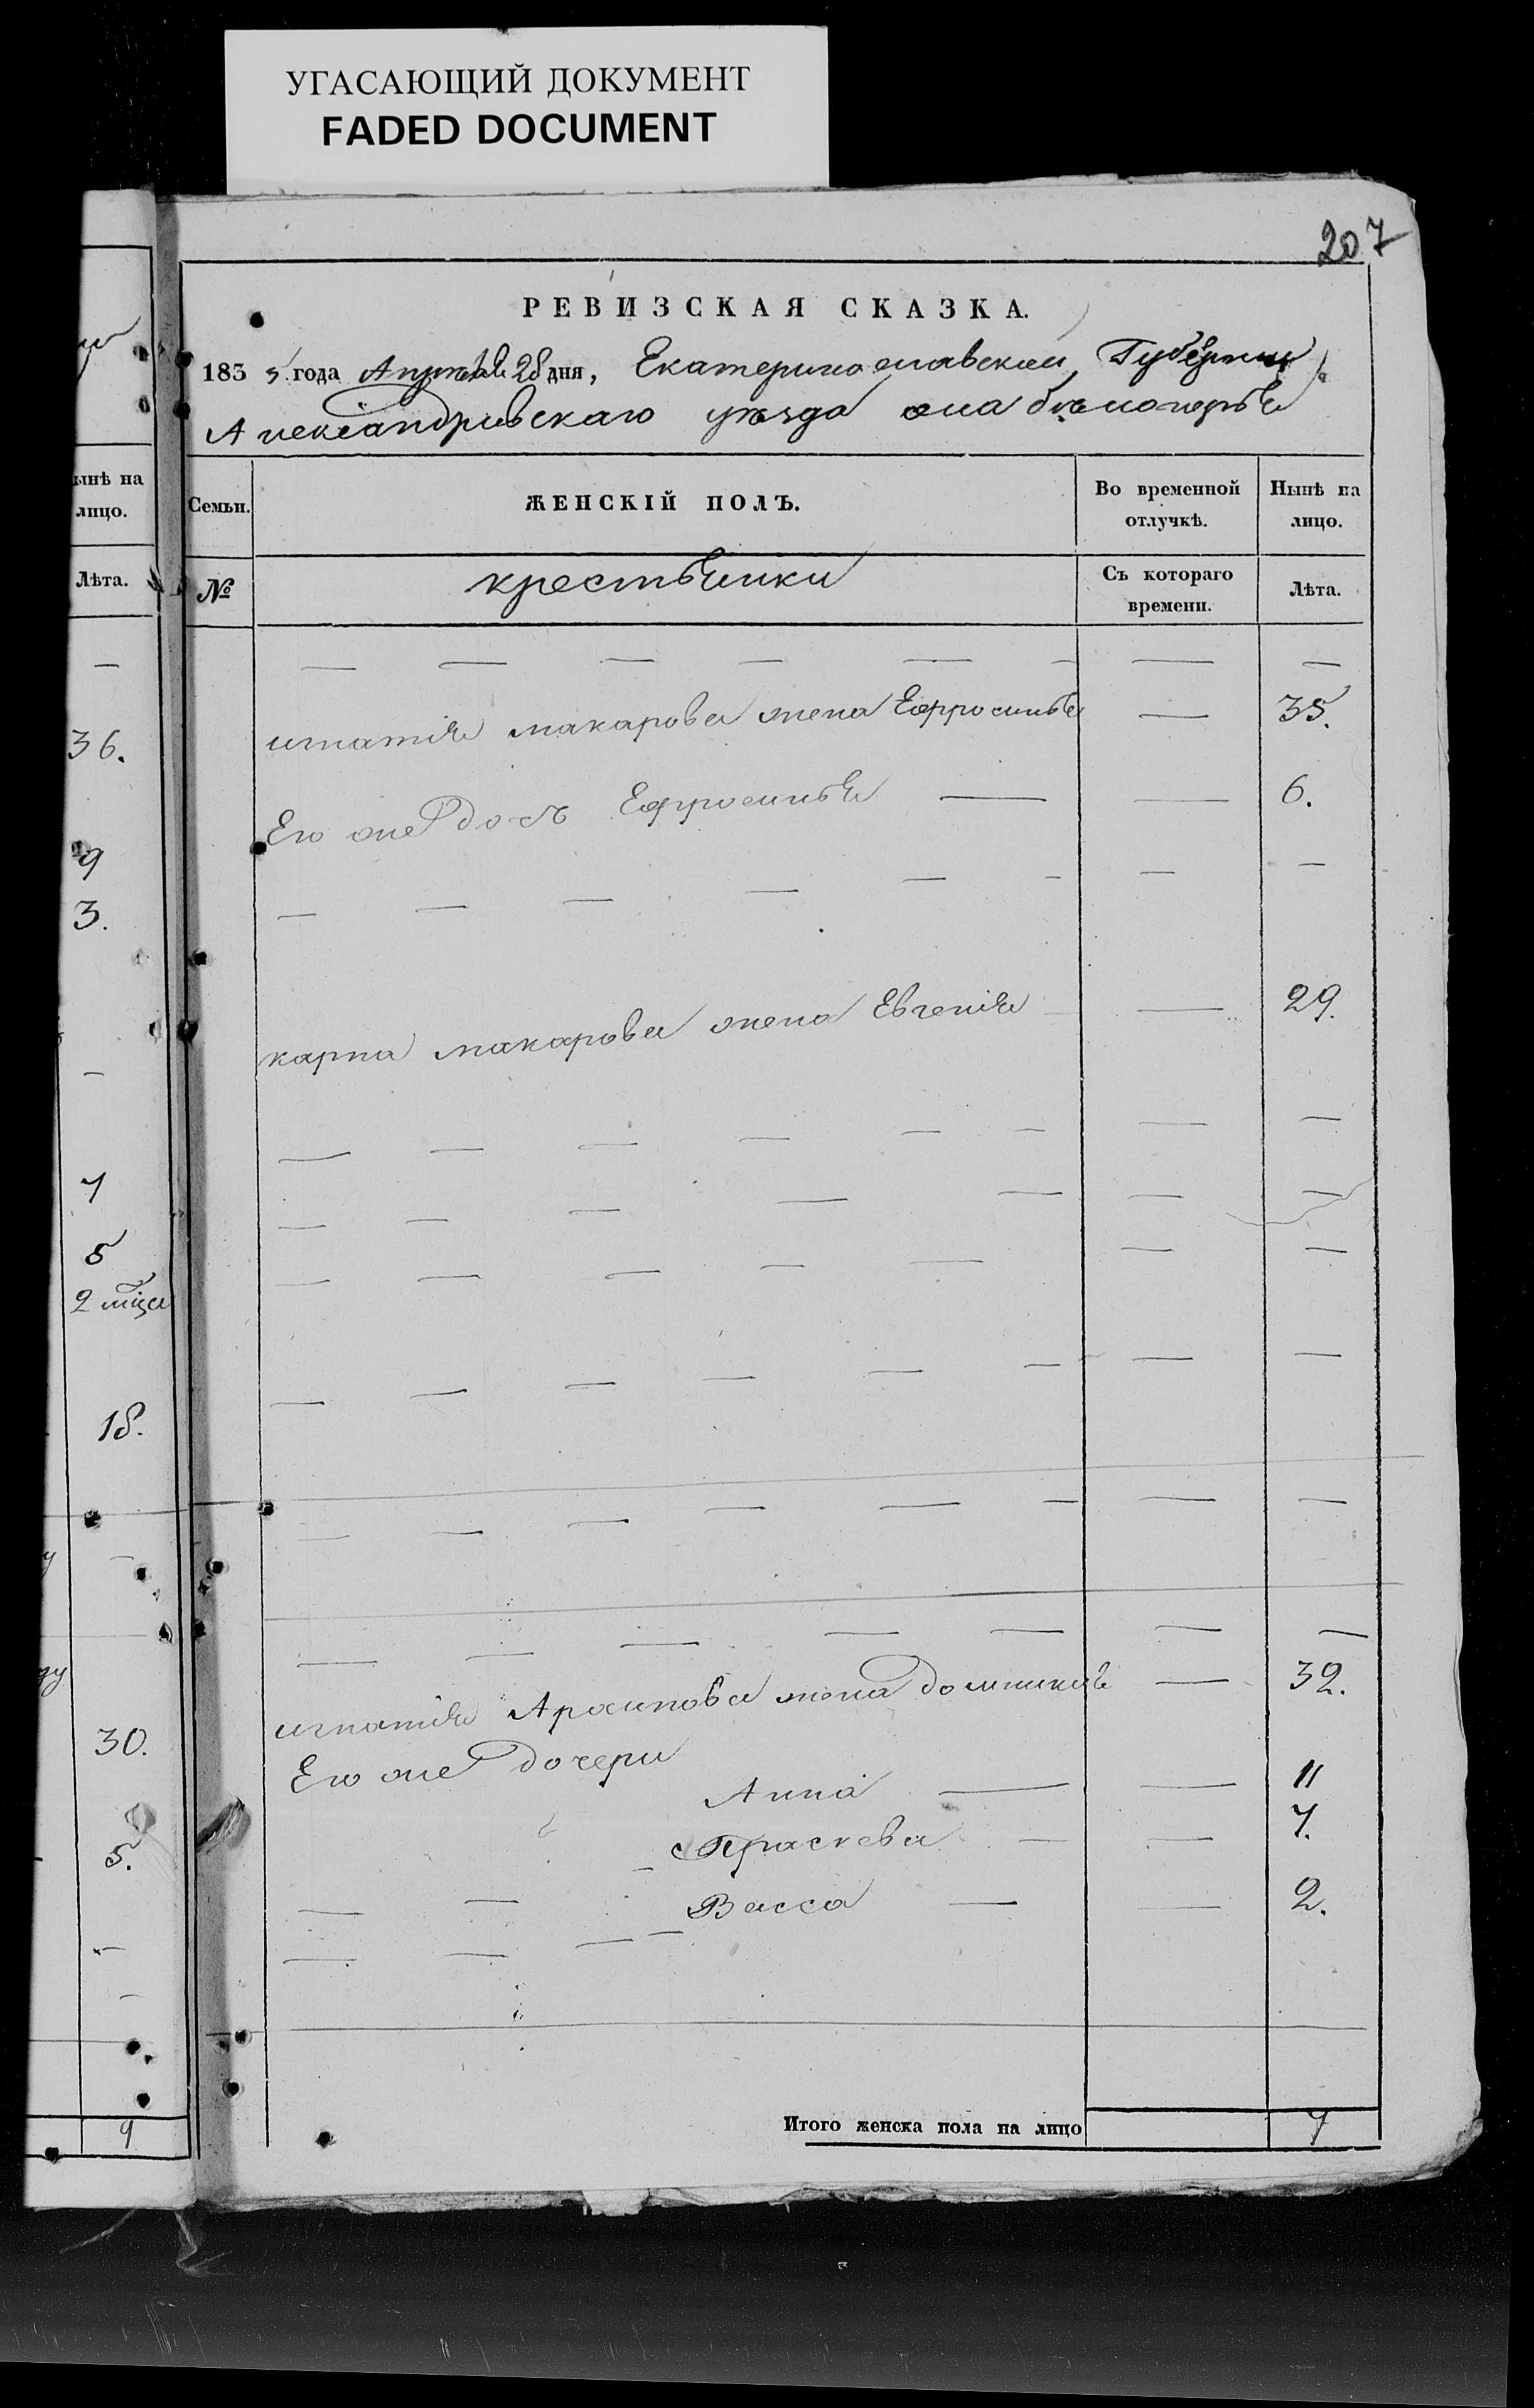 УГАСАЮЩИЙ ДОКУМЕНТ
FADED DOCUMENT
207
РЕВИЗСКАЯ СКАЗКА.
1835 года Апреля 28 дня, Екатеринославской Губернии
Александровскаго уезда села белогорья
ынѣ на
лицо.
Лѣта.
Семьи.
ЖЕНСКІЙ ПОЛЪ.
Во временной
отлучкѣ.
Нынѣ на
лицо.
№
крестьянки
Съ котораго
времени.
Лѣта.
—
36.
9
3.
—
7
5
2 мца
18.
—
30.
5.
9
игнатія макарова жена Ефросинья — 35.
Его же дочь Ефросинья — — 6.
карпа макарова жена Евгенія — 29.
игнатія Архипова жена домникія — 32.
Его же дочери
Анна — — 11
Праскева — — 7.
Васса — — 2.
Итого женска пола на лицо 7